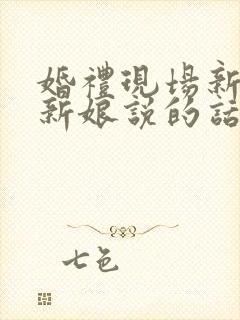 婚禮現場新
新娘説的話
七色